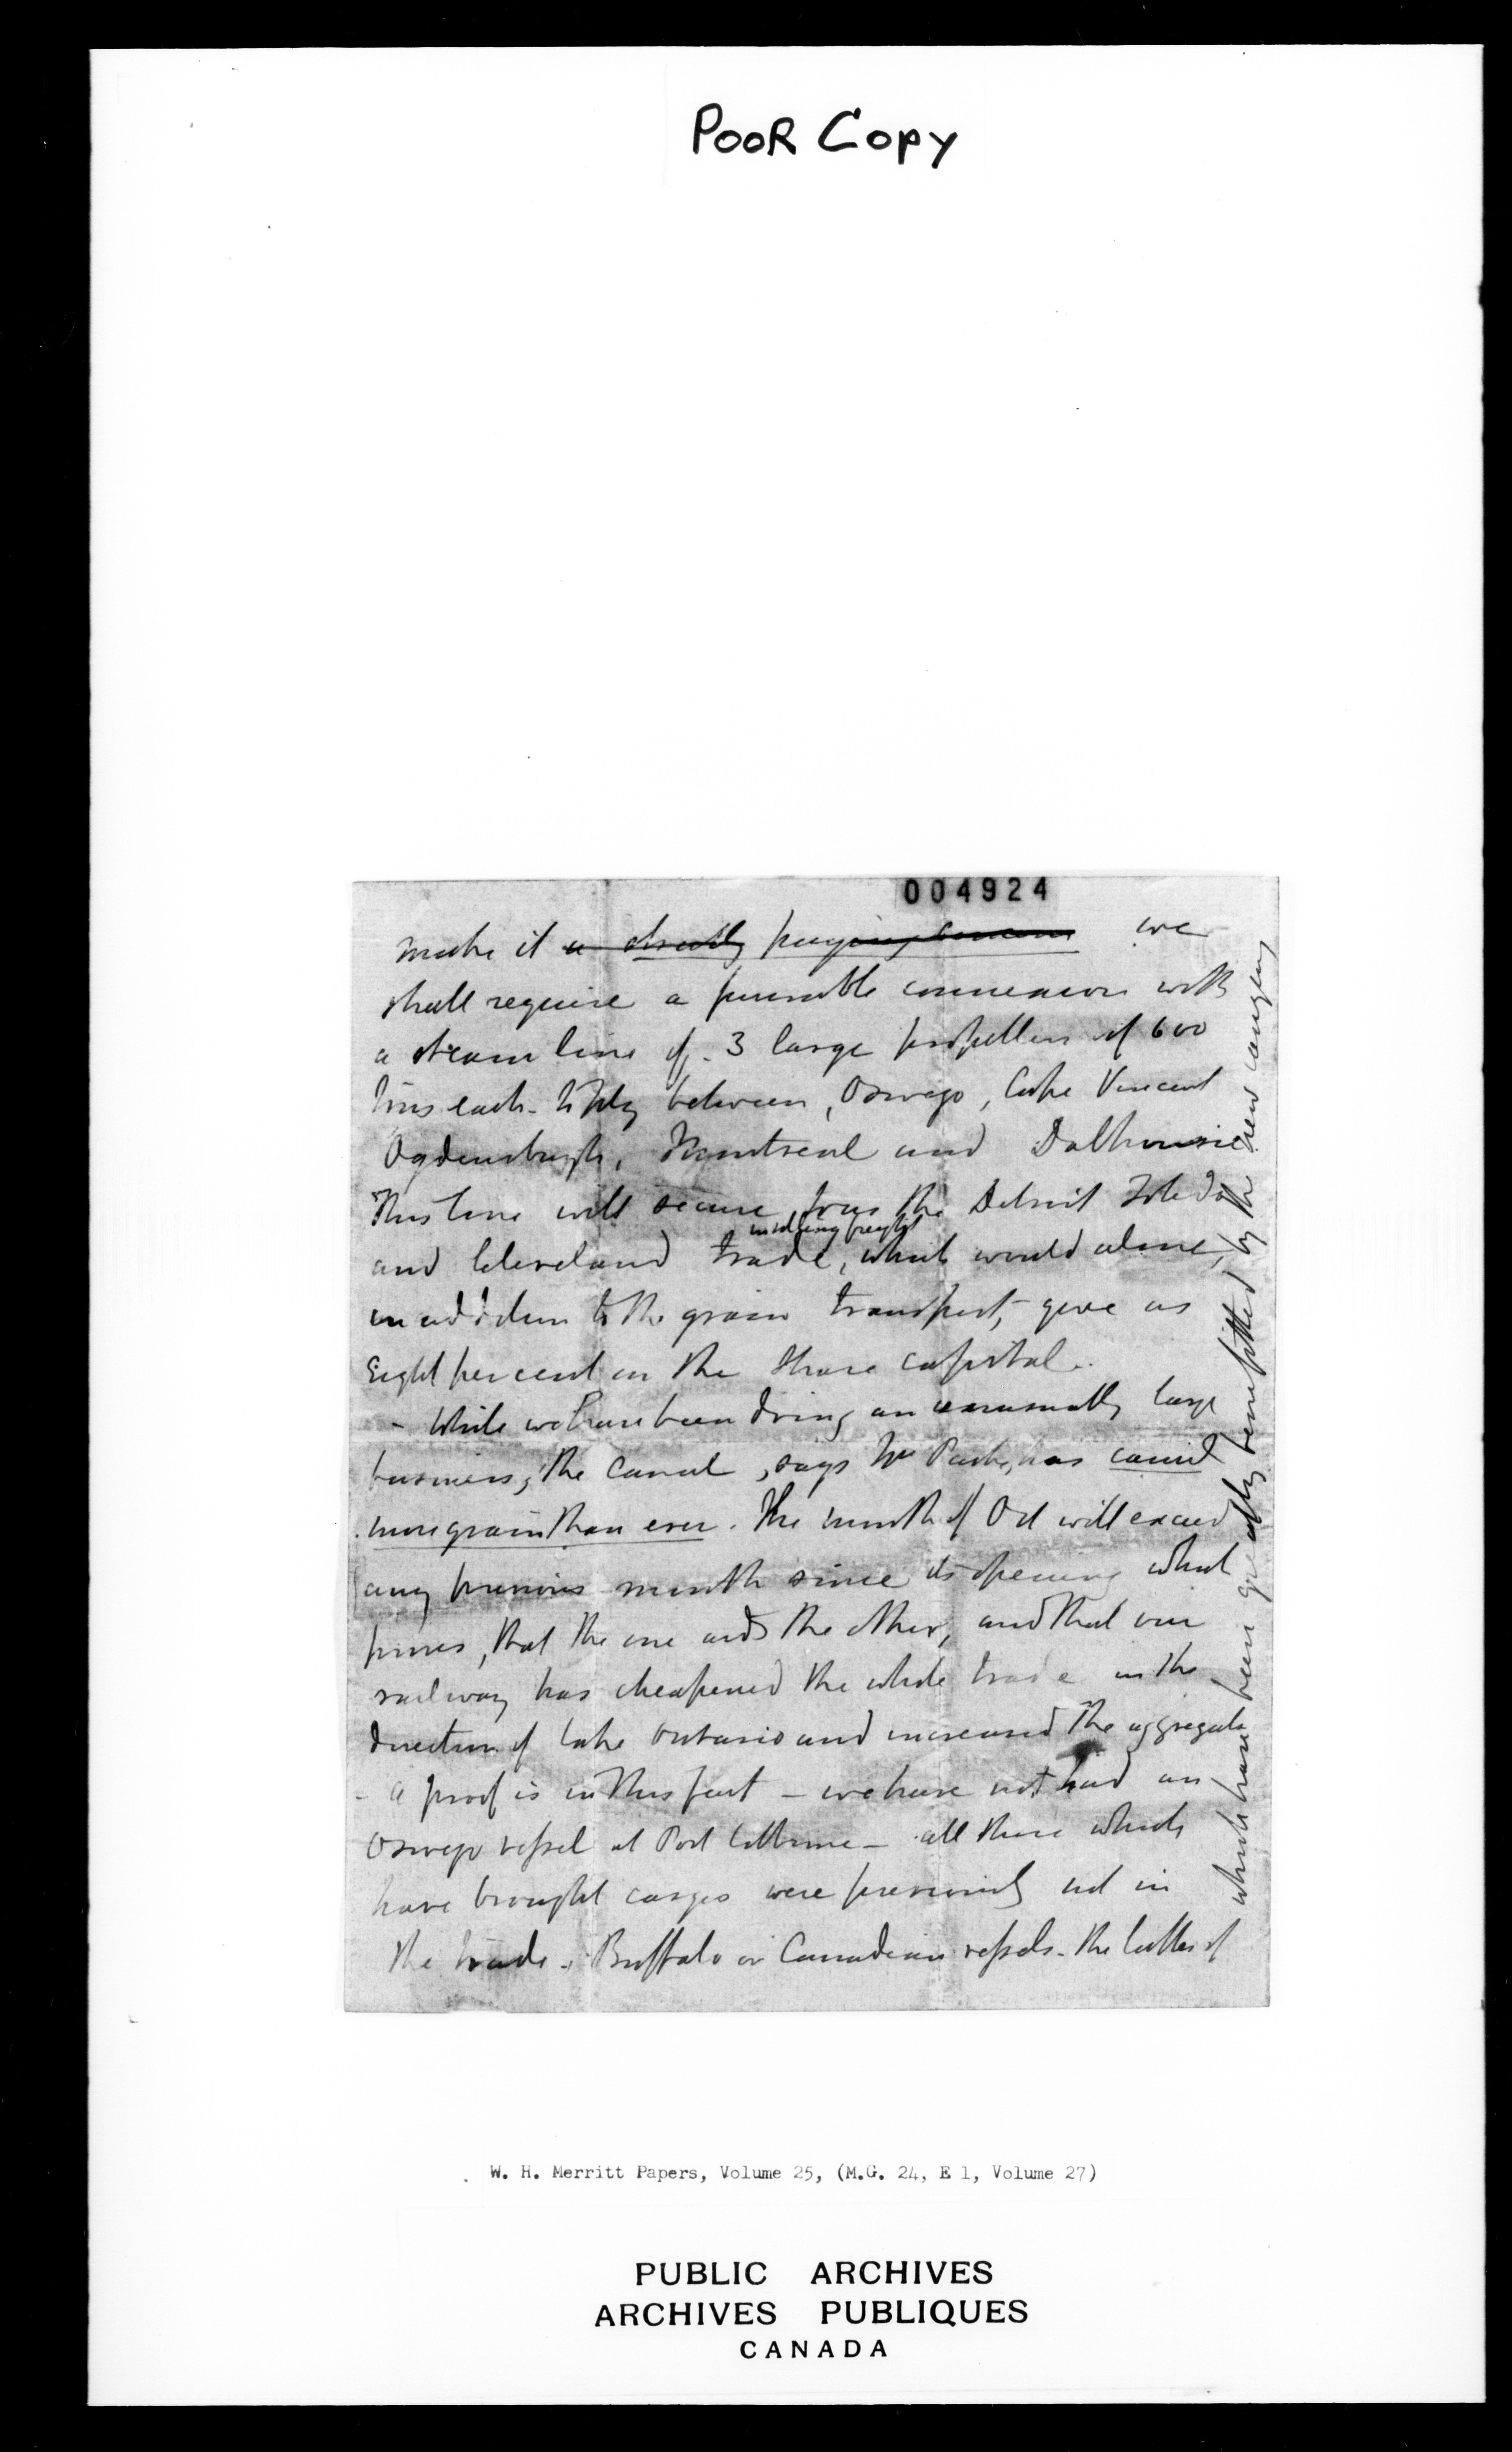 POOR COPY
004924
make it a directly paying concern we
shall require a permanent connexion with
a steam line of 3 large propellers of 600
tons each to ply between, Oswego, Cape Vincent
Ogdensburgh, Montreal and Dalhousie
This line will secure, from the Detroit Toledo
and Cleveland trade, which would alone,
in addition to the grain transport, give us
Eight per cent on the Share capital.
- While we have been doing an unusually large
business, the Canal, says Mr Park, has carried
more grain than ever. The month of Oct will exceed
any previous month since its opening which
proves, that the one aids the other, and that our
railway has cheapened the whole trade in the
direction of Lake Ontario and increased the aggregate
- A proof is in this fact - we have not had an
Oswego vessel at Port Colborne - all those which
have brought cargos were previously not in
the trade - Buffalo or Canadian vessels - the latter of
which have been greatly benefitted by the new
W. H. Merritt Papers, Volume 25, (M.G. 24, E 1, Volume 27)
PUBLIC ARCHIVES
ARCHIVES PUBLIQUES
CANADA